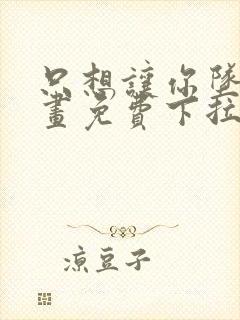 只想讓你墜
畫免費下拉
涼豆子